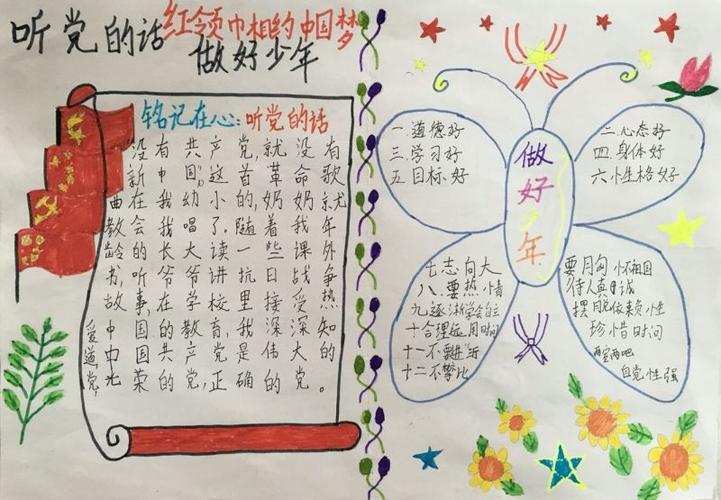 听党的话
红领巾相约中国梦
做好少年
铭记在心:听党的话
“没有共产党,就没有
新中国”,这首革命歌
曲在我幼小的,奶奶就
教会我唱了.随着我年
龄的长大读一些课外
书,听爷爷讲抗日战争
故事,在学校里接受热
爱中国的教育,我深知
道中国共产党是伟大的
党,光荣的党,正确的党。
做好少年
一道德好
二心态好
三.学习好
四.身体好
五目标好
六性格好
七志向大
八.要热情
九逐渐学会自立
十合理运用时间
十一不
十二不攀比
要胸怀祖国
待人真诚
摆脱依赖性
珍惜时间
自觉性强